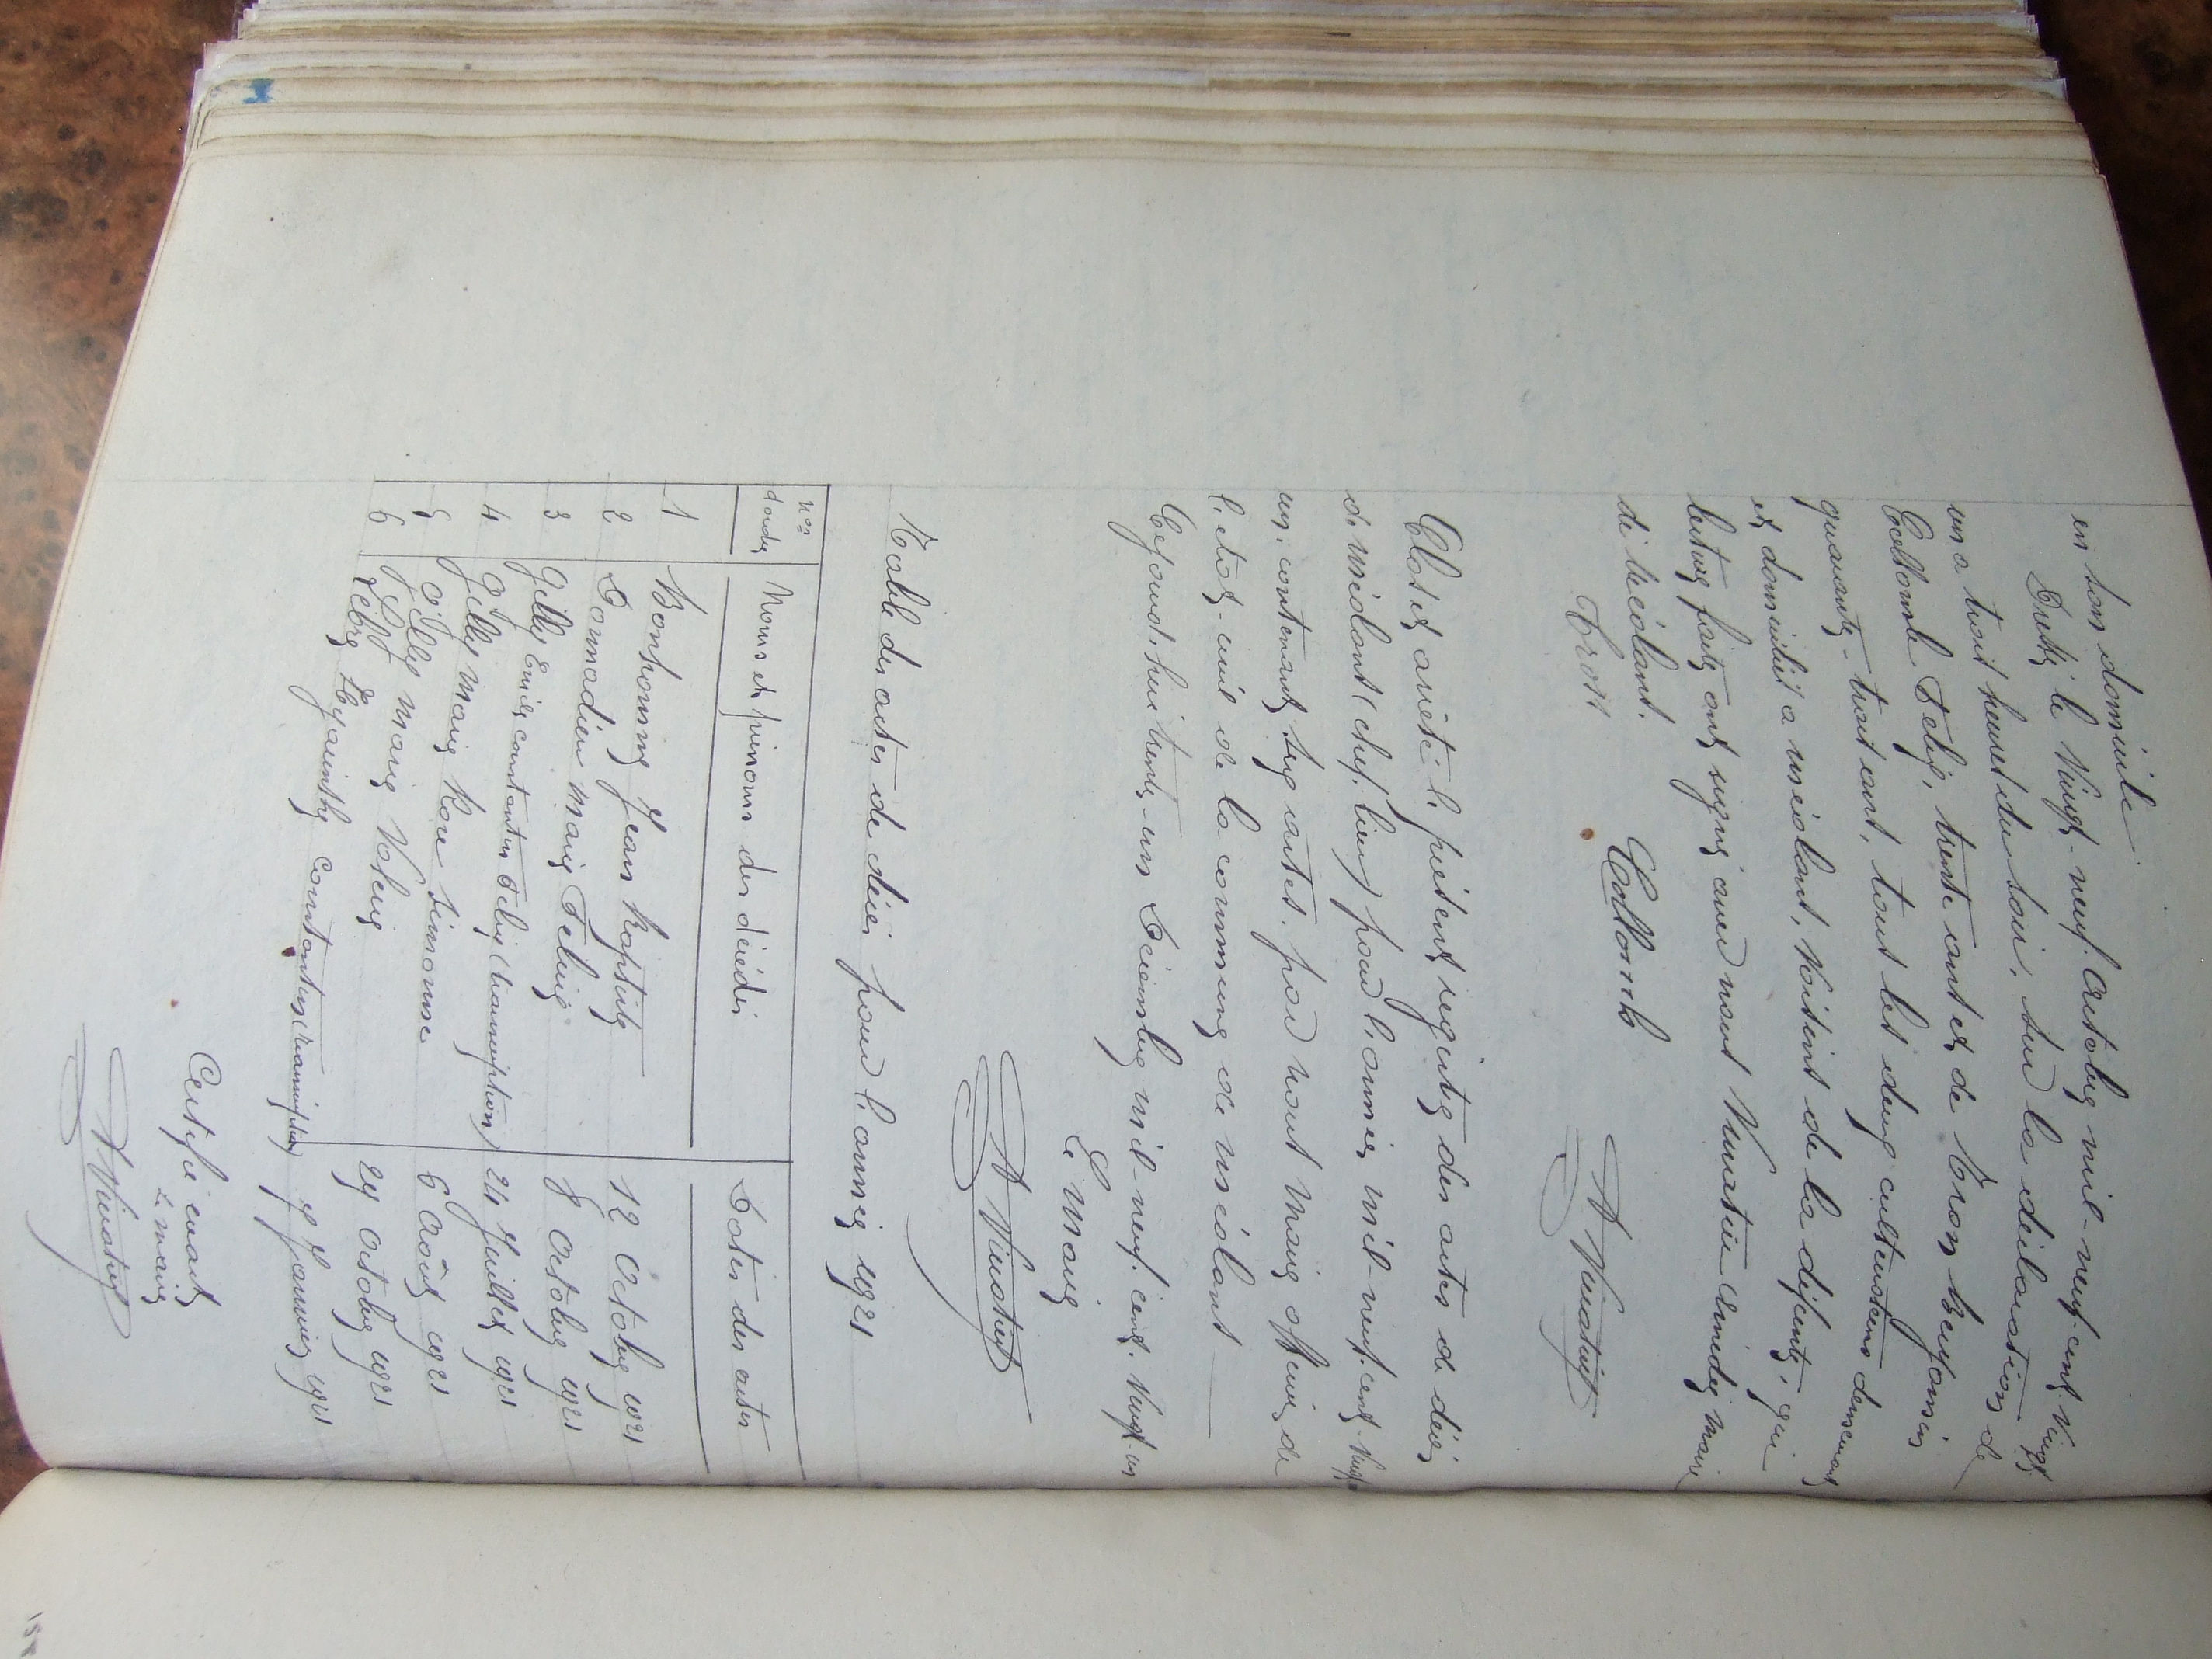 en son domicile
Dressé le Vingt-neuf Octobre mil-neuf cent Vingt
un a trois heures du soir, sur la déclaration de
Collomb Félix, trente ans et de Tron
quarante-trois ans, tous les deux cultivateurs demeurant
et domiciliés a méolans, Voisins de la défunte, qui
lecture faite ont signé avec nous maire
de Méolans.
Tron Collomb
Clos et arrêté le présent registre des actes de décès
de méolans (chef-lieu) pour l'année mil-neuf-cent-Vingt
un, contenant six actes, par nous maire officier de
l'état-civil de la commune de méolans
Cejourd'hui trente-un Décembre mil-neuf-cent-Vingt-un
Le Maire
Table des actes de décès pour l'année 1921
Nos d'ordre Noms et prénoms des décédés Dates des actes
1 Bonhomme Jean Baptiste 12 Octobre 1921
2 Donnadieu Marie 8 Octobre 1921
3 Gilly constantin Félix (transcription) 24 Juillet 1921
4 Gilly Marie Rose Simonne 6 Août 1921
5 Gilly Marie 29 Octobre 1921
6 Hyacinthe constantin (transcription) 7 Janvier 1921
Certifié exact
Le maire